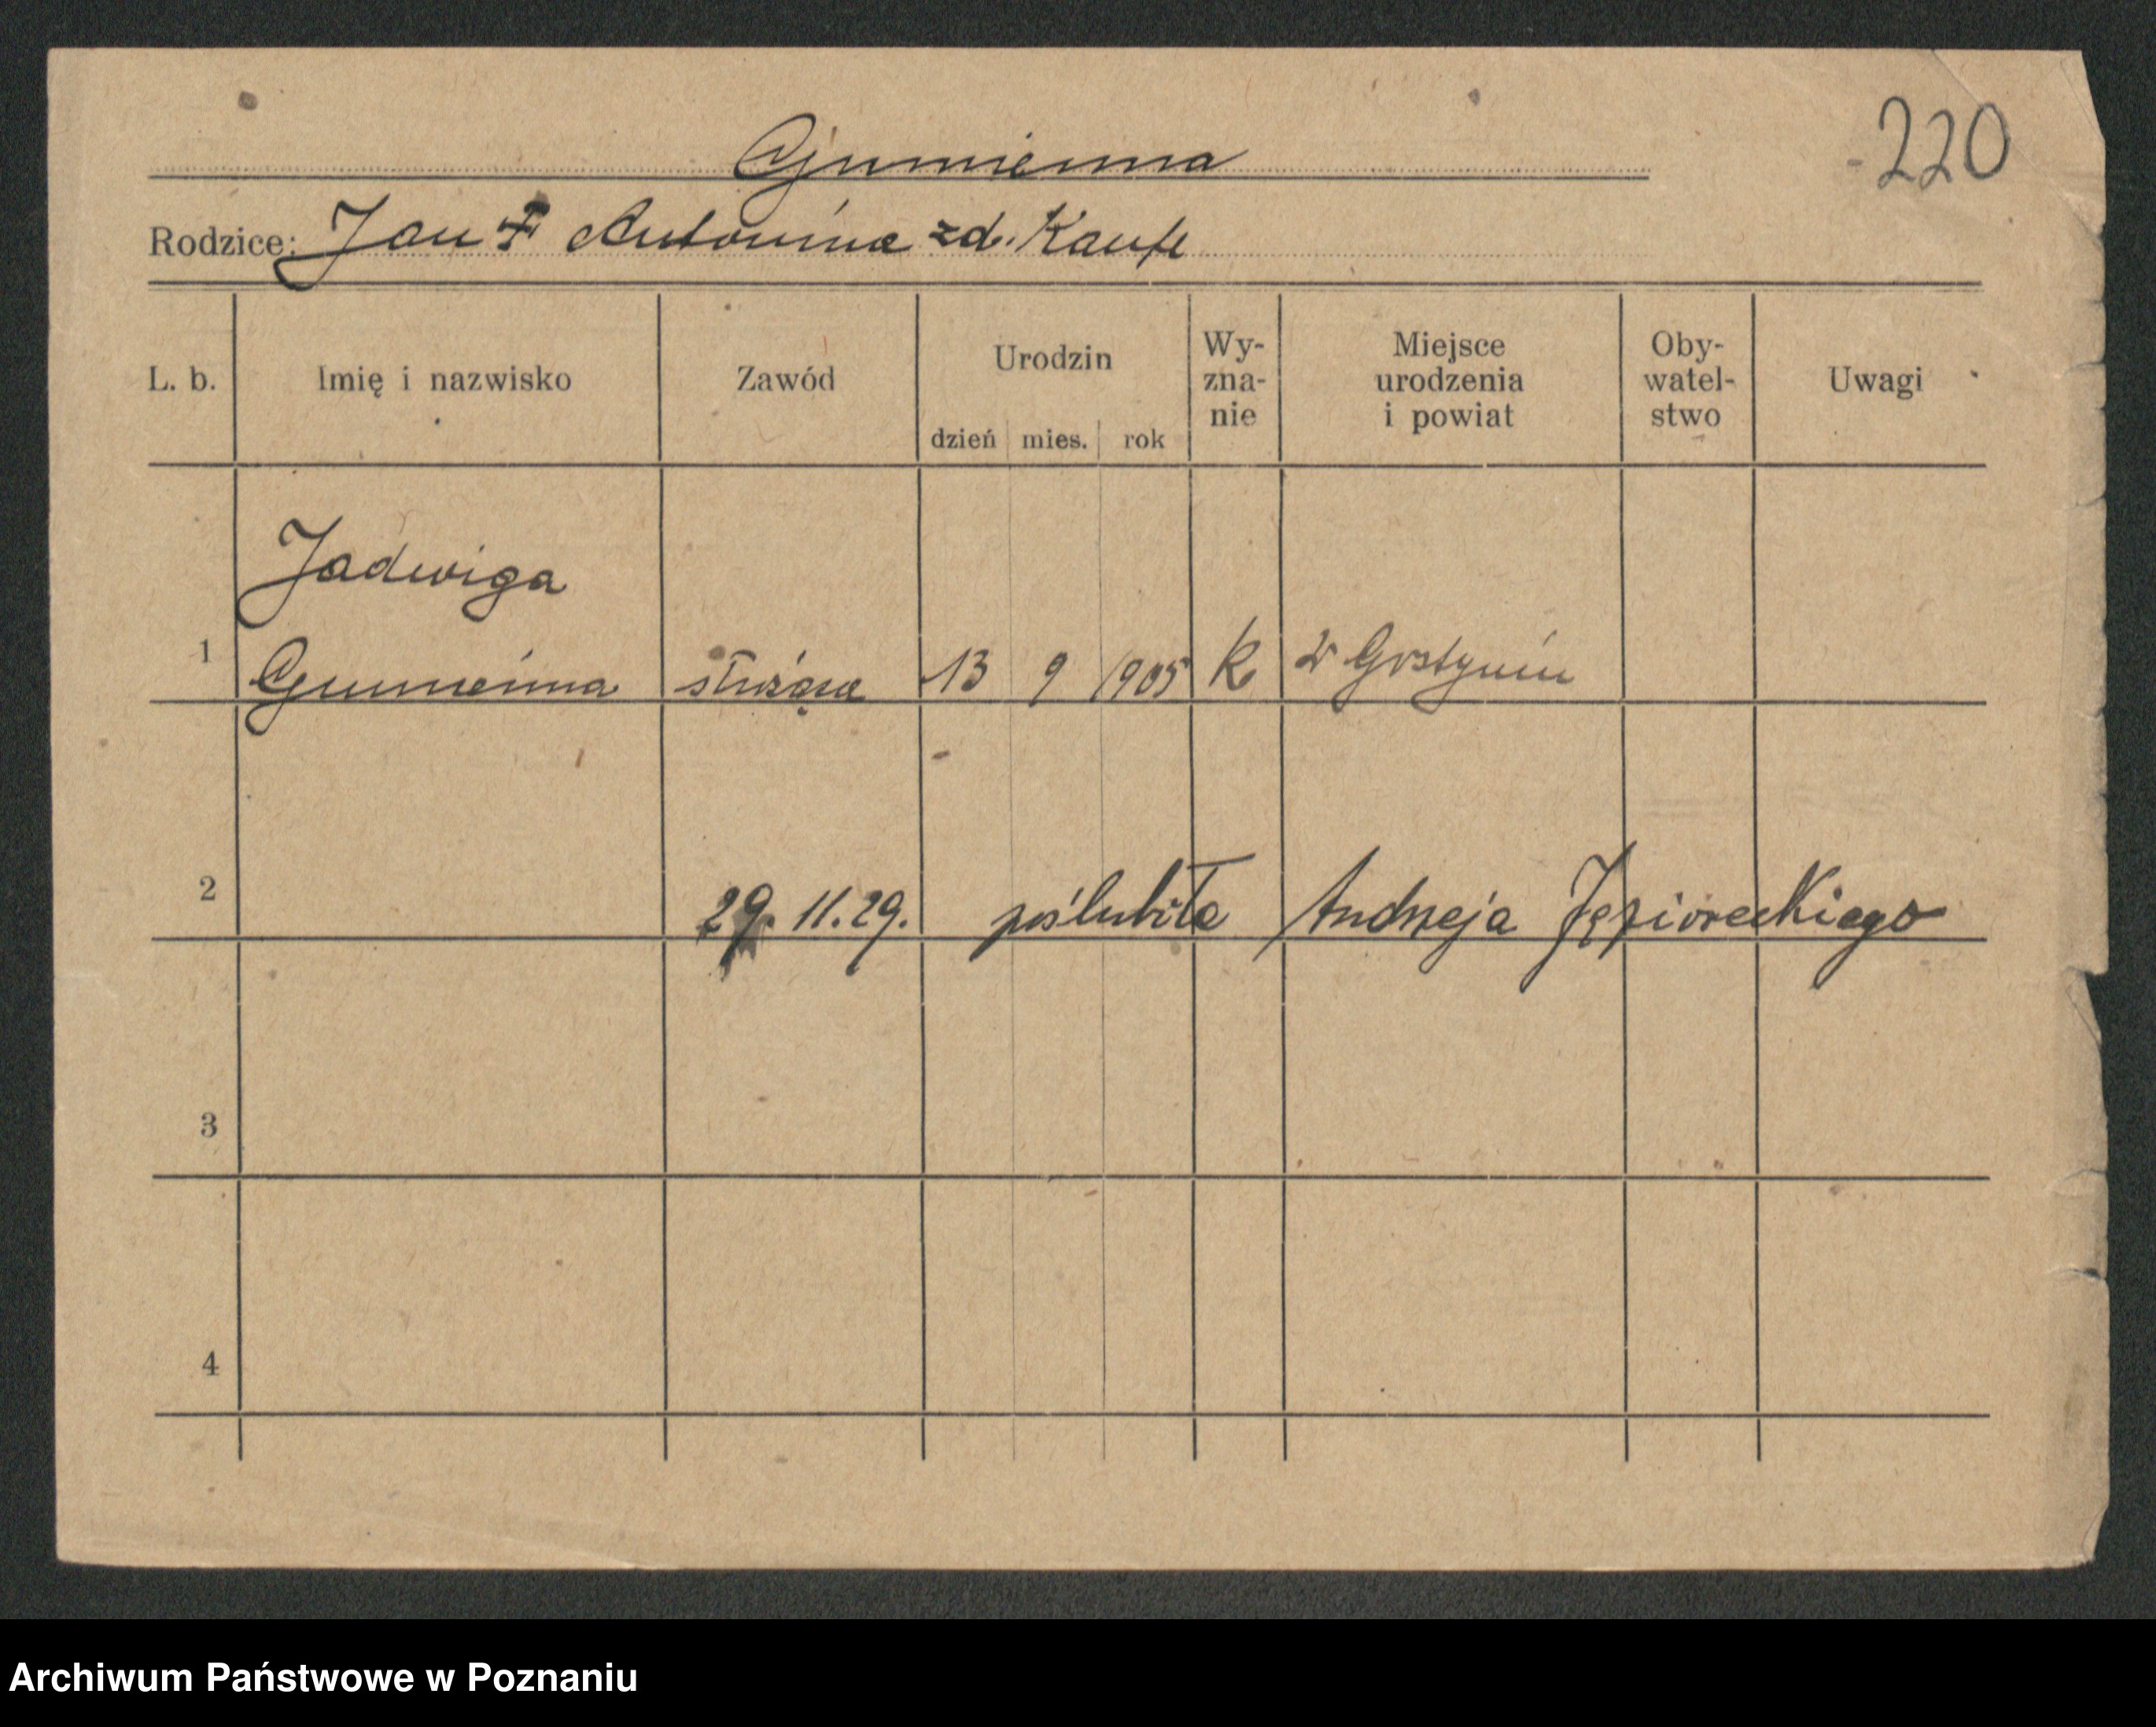 220
Gumienna
Rodzice: Jan † Antonina zd. Kaufe
L. b. Imię i nazwisko Zawód Urodzin dzień mies. rok Wy-zna-nie Miejsce urodzenia i powiat Oby-watel-stwo Uwagi
Jadwiga
1 Gumienna służąca 13 9 1905 k w Gostyniu
2 29. 11. 29. poślubiła Andrzeja Jęzioreckiego
3
4
Archiwum Państwowe w Poznaniu